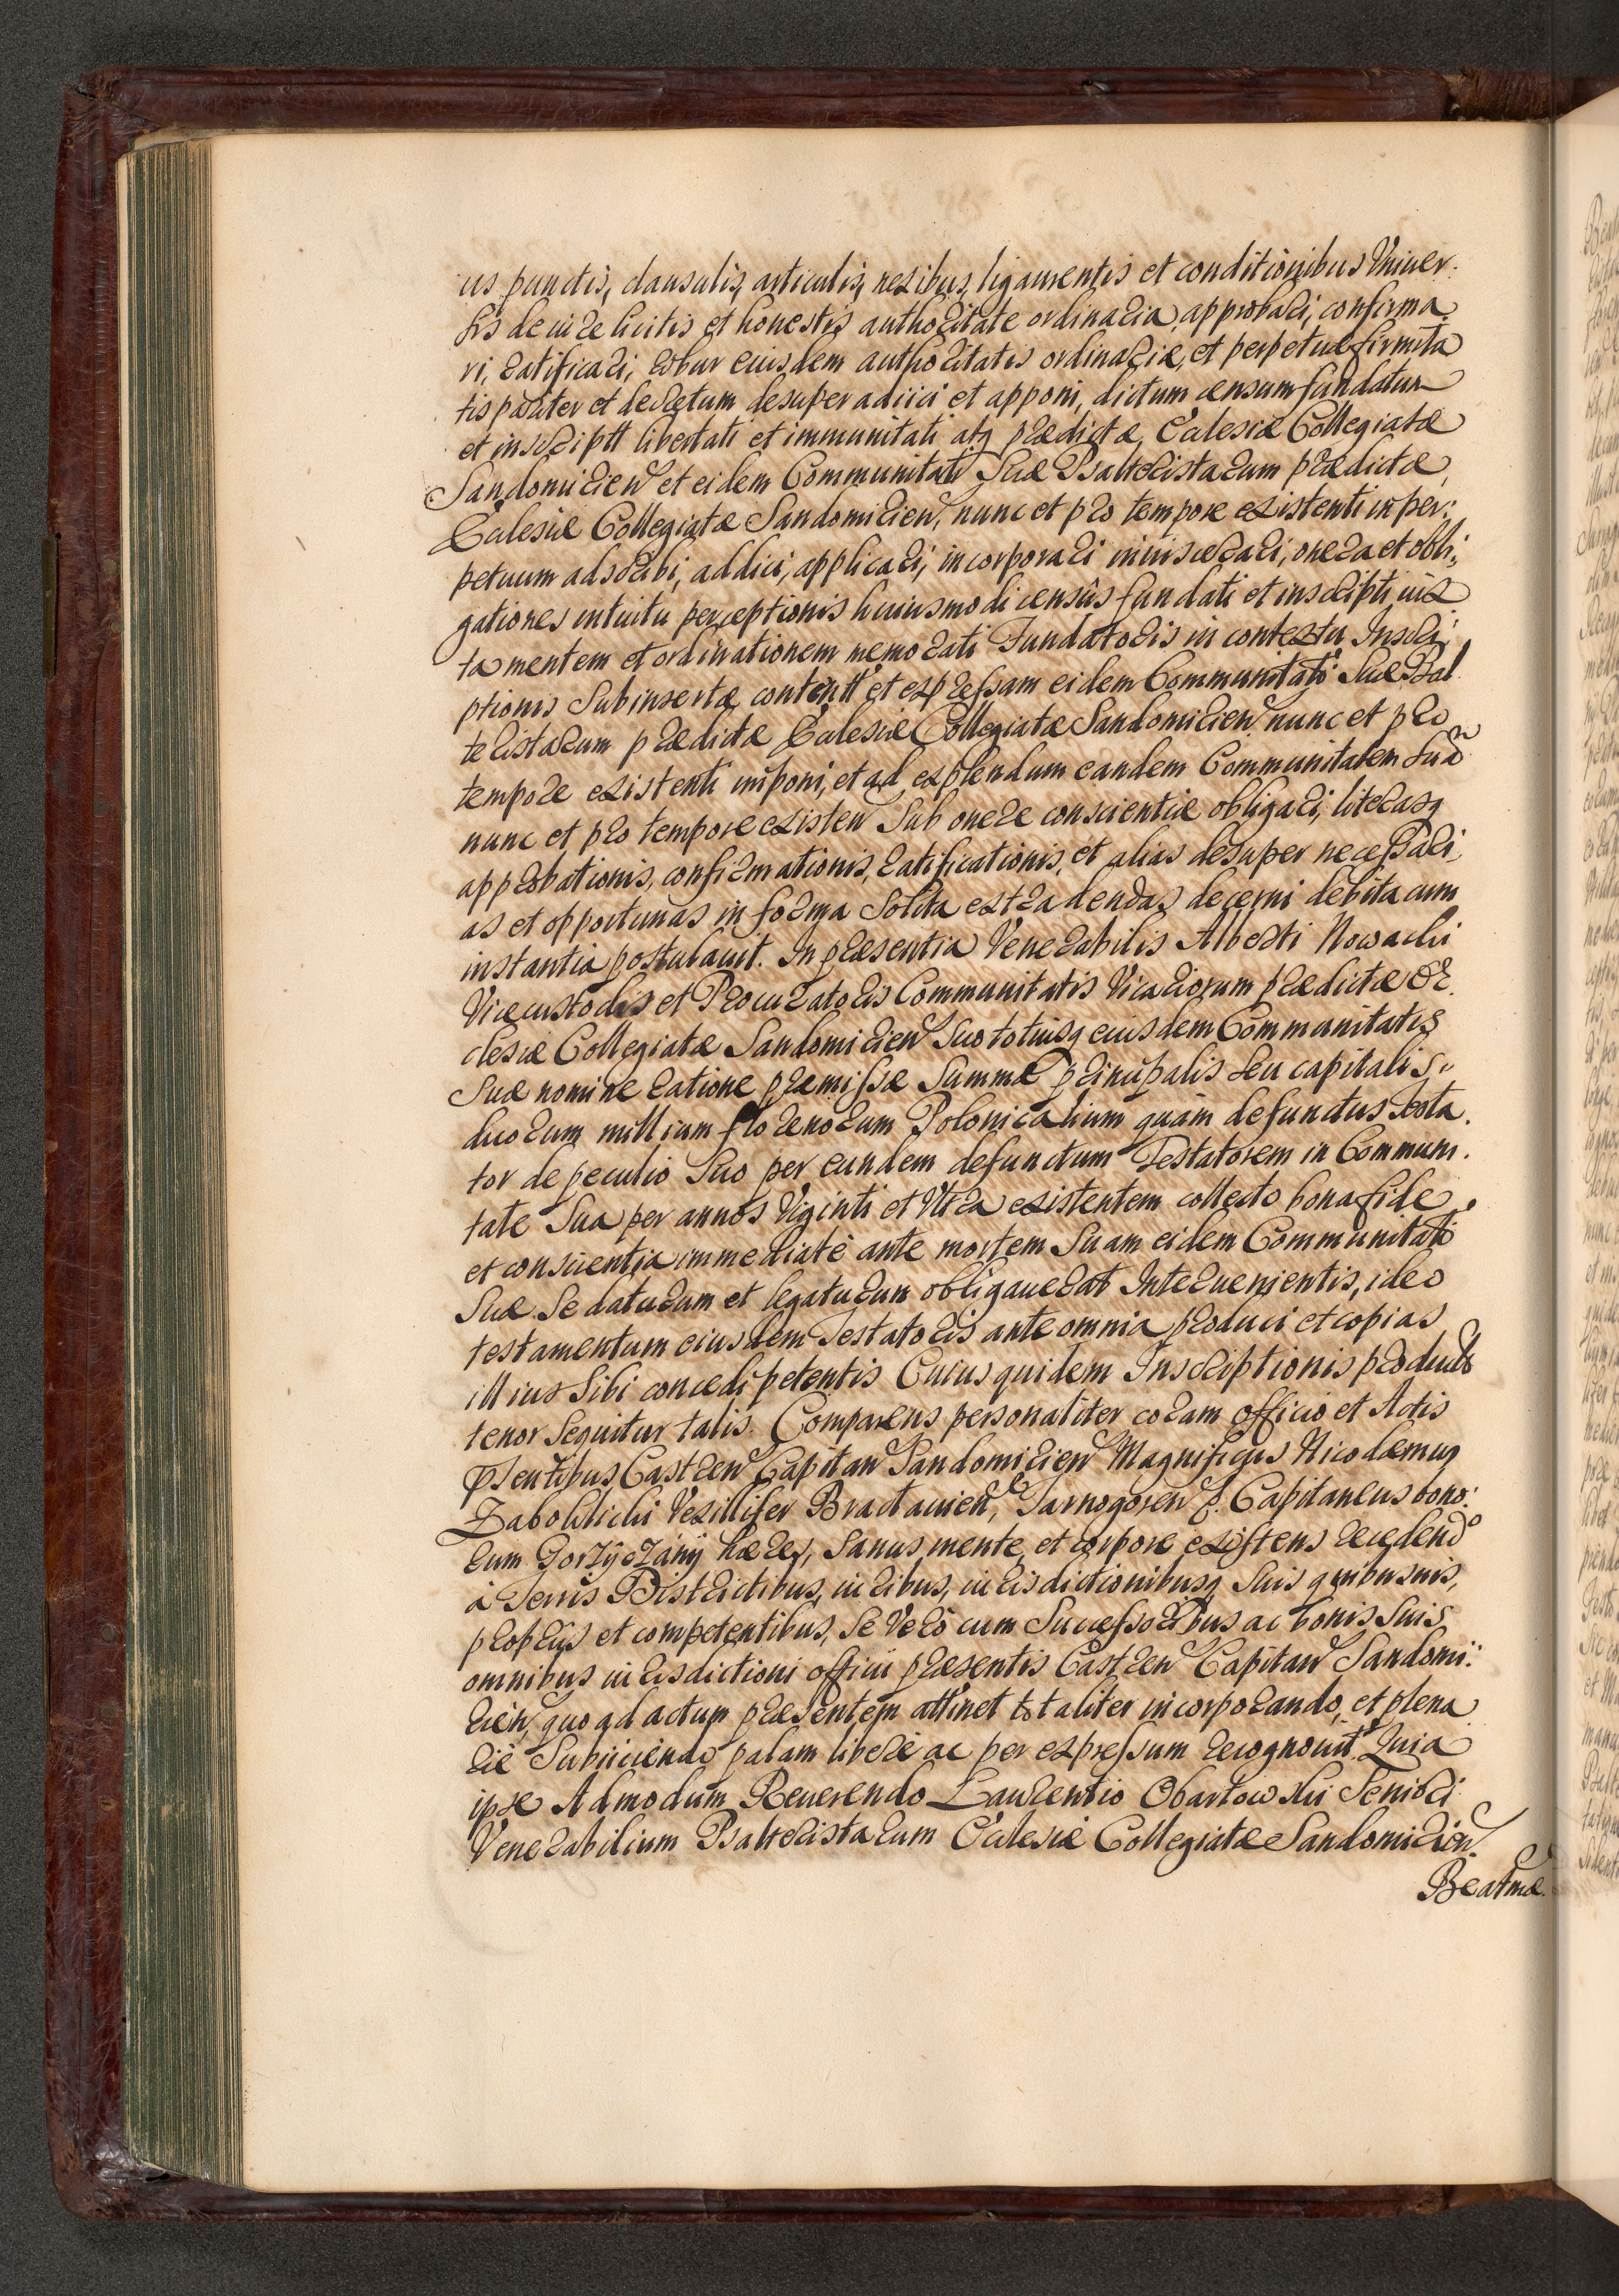 us punctis, clausulis, articulis, nexibus, ligamentis et conditionibus Vniuer-
sis de iure licitis et honestis authoritate ordinaria, approbari, confirma
ri, ratificari, robur eiusdem authoritatis ordinariæ, et perpetuæ firmita
tis pariter et decretum desuper adiici et apponi, dictum censum fundatum
et inscriptt libertati et immunitati atq prædictæ, Ecclesiæ Collegiatæ
Sandomirien et eidem Communitati Suæ Psalteristarum prædictæ,
Ecclesiæ Collegiatæ Sandomirien, nunc et pro tempore existenti in per:
petuum adscribi, addici, applicari, incorporari inuiscerari, onera et obli:
gationes intuitu perceptionis huiusmodi censûs fundati et inscripti iux
ta mentem et ordinationem memorati Fundatoris in contextu Inscri:
ptionis Subinsertæ contentt et expressam eidem Communitati Suæ Psal
teristarum prædictæ Ecclesiæ Collegiatæ Sandomirien nunc et pro
tempore existenti imponi, et ad explendum eandem Communitatem Suã
nunc et pro tempore existen Sub onere conscientiæ obligari, literasq
approbationis, confirmationis, ratificationis, et alias desuper necessari
as et opportunas in forma Solita extradendas decerni debita cum
instantia postulauit. In præsentia Venerabilis Alberti Nowacki
Vicecustodis et Procuratoris Communitatis Vicariorum prædictæ Ec
clesiæ Collegiatæ Sandomirien Suo totiusq eiusdem Communitatis
Suæ nomine ratione præmissæ Summæ principalis seu capitalis
duorum millium florenorum Polonicalium quam defunctus Testa
tor de peculio Suo per eundem defunctum Testatorem in Communi.
tate Sua per annos Viginti et Vltra existentem collecto bonafide
et conscientia immediatè ante mortem Suam eidem Communitati
Suæ Se daturum et legaturum obligauerat Interuenientis, ideo
testamentum eiusdem Testatoris ante omnia produci et copias
illius Sibi concedi petentis Cuius quidem Inscriptionis product
tenor Sequitur talis. Comparens personaliter coram Officio et Actis
Psentibus Castren Capitan Sandomirien Magnificus Nicodemus
Zaboklicki Vexillifer Bractauien, Tarnogoren &. Capitaneus bono:
rum Gorzyczány hæres, Sanus mente et corpore existens recedend
à Terris Districtibus, iuribus, iurisdictionibusq Suis quibusuis,
proprijs et competentibus, Se verò cum Successoribus ac bonis Suis
omnibus iurisdictioni officii præsentis Castren Capitan Sandomi:
rien, quo ad actum præsentem attinet totaliter incorporando, et plena
riè Subiiciendo palam liberè ac per expressum recognouit. Quia
ipse Admodum Reuerendo Laurentio Obartowski Seniori
Venerabilium Psalteristarum Ecclesiæ Collegiatæ Sandomirien.
Beatmæ.